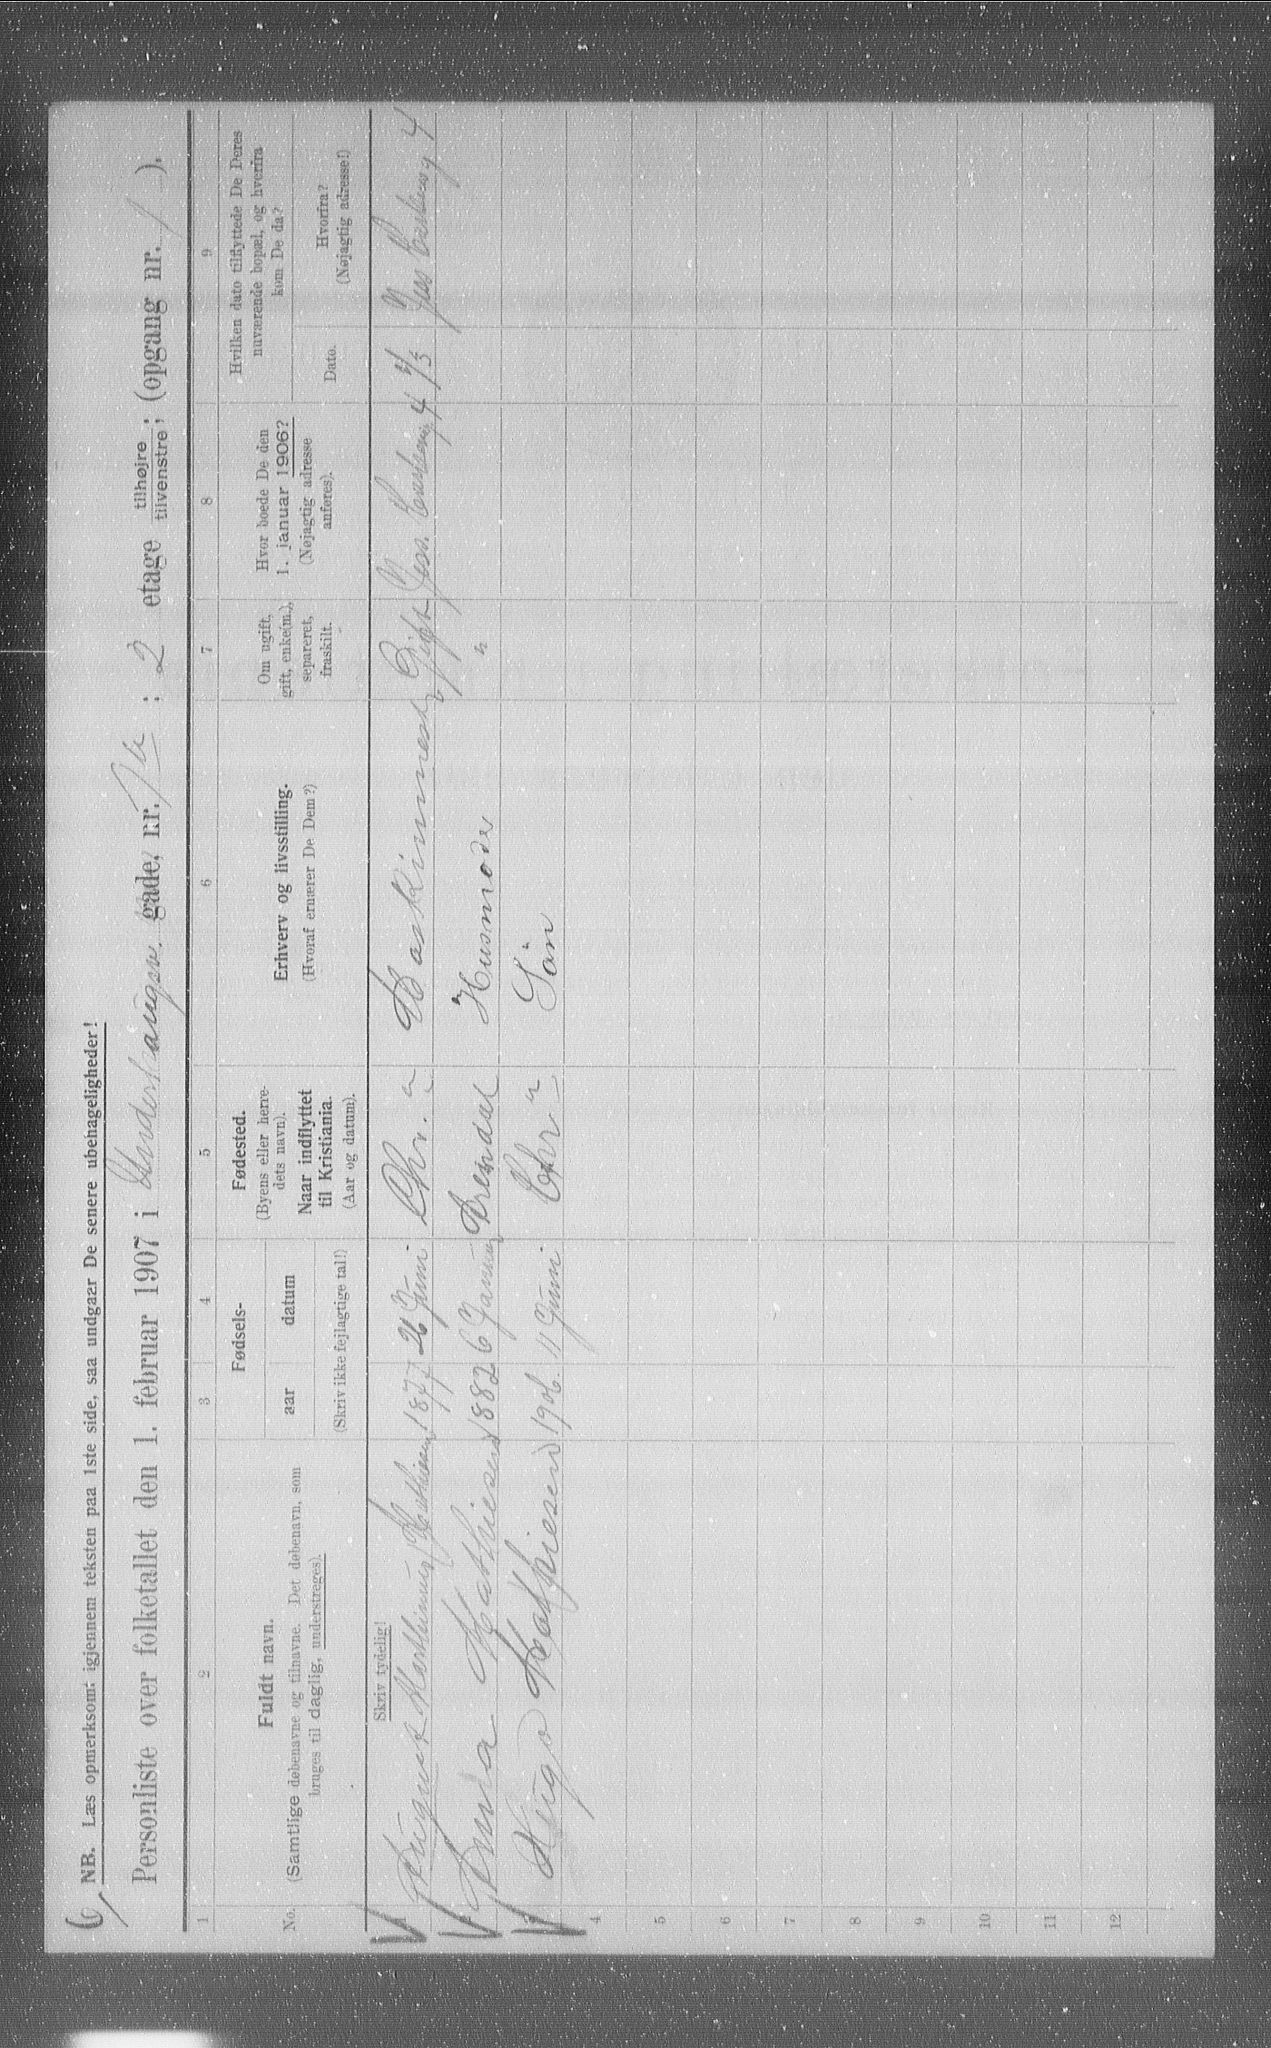 6/
NB. Læs opmerksomt igjennem teksten paa 1ste side, saa undgaar De senere ubehageligheder!
Personliste over folketallet den 1. februar 1907 i gade, nr. ; 2 etage tilhøjre tilvenstre; (opgang nr. / ).
1 2 3 4 5 6 7 8 9
No.
Fuldt navn.
(Samtlige døbenavne og tilnavne. Det døbenavn, som
bruges til daglig, understreges).
Fødsels-
aar datum
(Skriv ikke fejlagtige tal!)
Fødested.
(Byens eller herre-
dets navn).
Naar indflyttet
til Kristiania.
(Aar og datum).
Erhverv og livsstilling.
(Hvoraf ernærer De Dem?)
Om ugift,
gift, enke(m.),
separeret,
fraskilt.
Hvor boede De den
1. januar 1906?
(Nøjagtig adresse
anføres).
Hvilken dato tilflyttede De Deres
nuværende bopæl, og hvorfra
kom De da?
Dato.
Hvorfra?
(Nøjagtig adresse!)
Skriv tydelig!
1 August Mathiesen 1877 26 Juni Chr. Gift 4 4
2 Anna Mathiesen 1882 6 Januar Arendal Husmoder "
3 Hugo Mathiesen 1906. 11 Juni Chr Sön
4
5
6
7
8
9
10
11
12